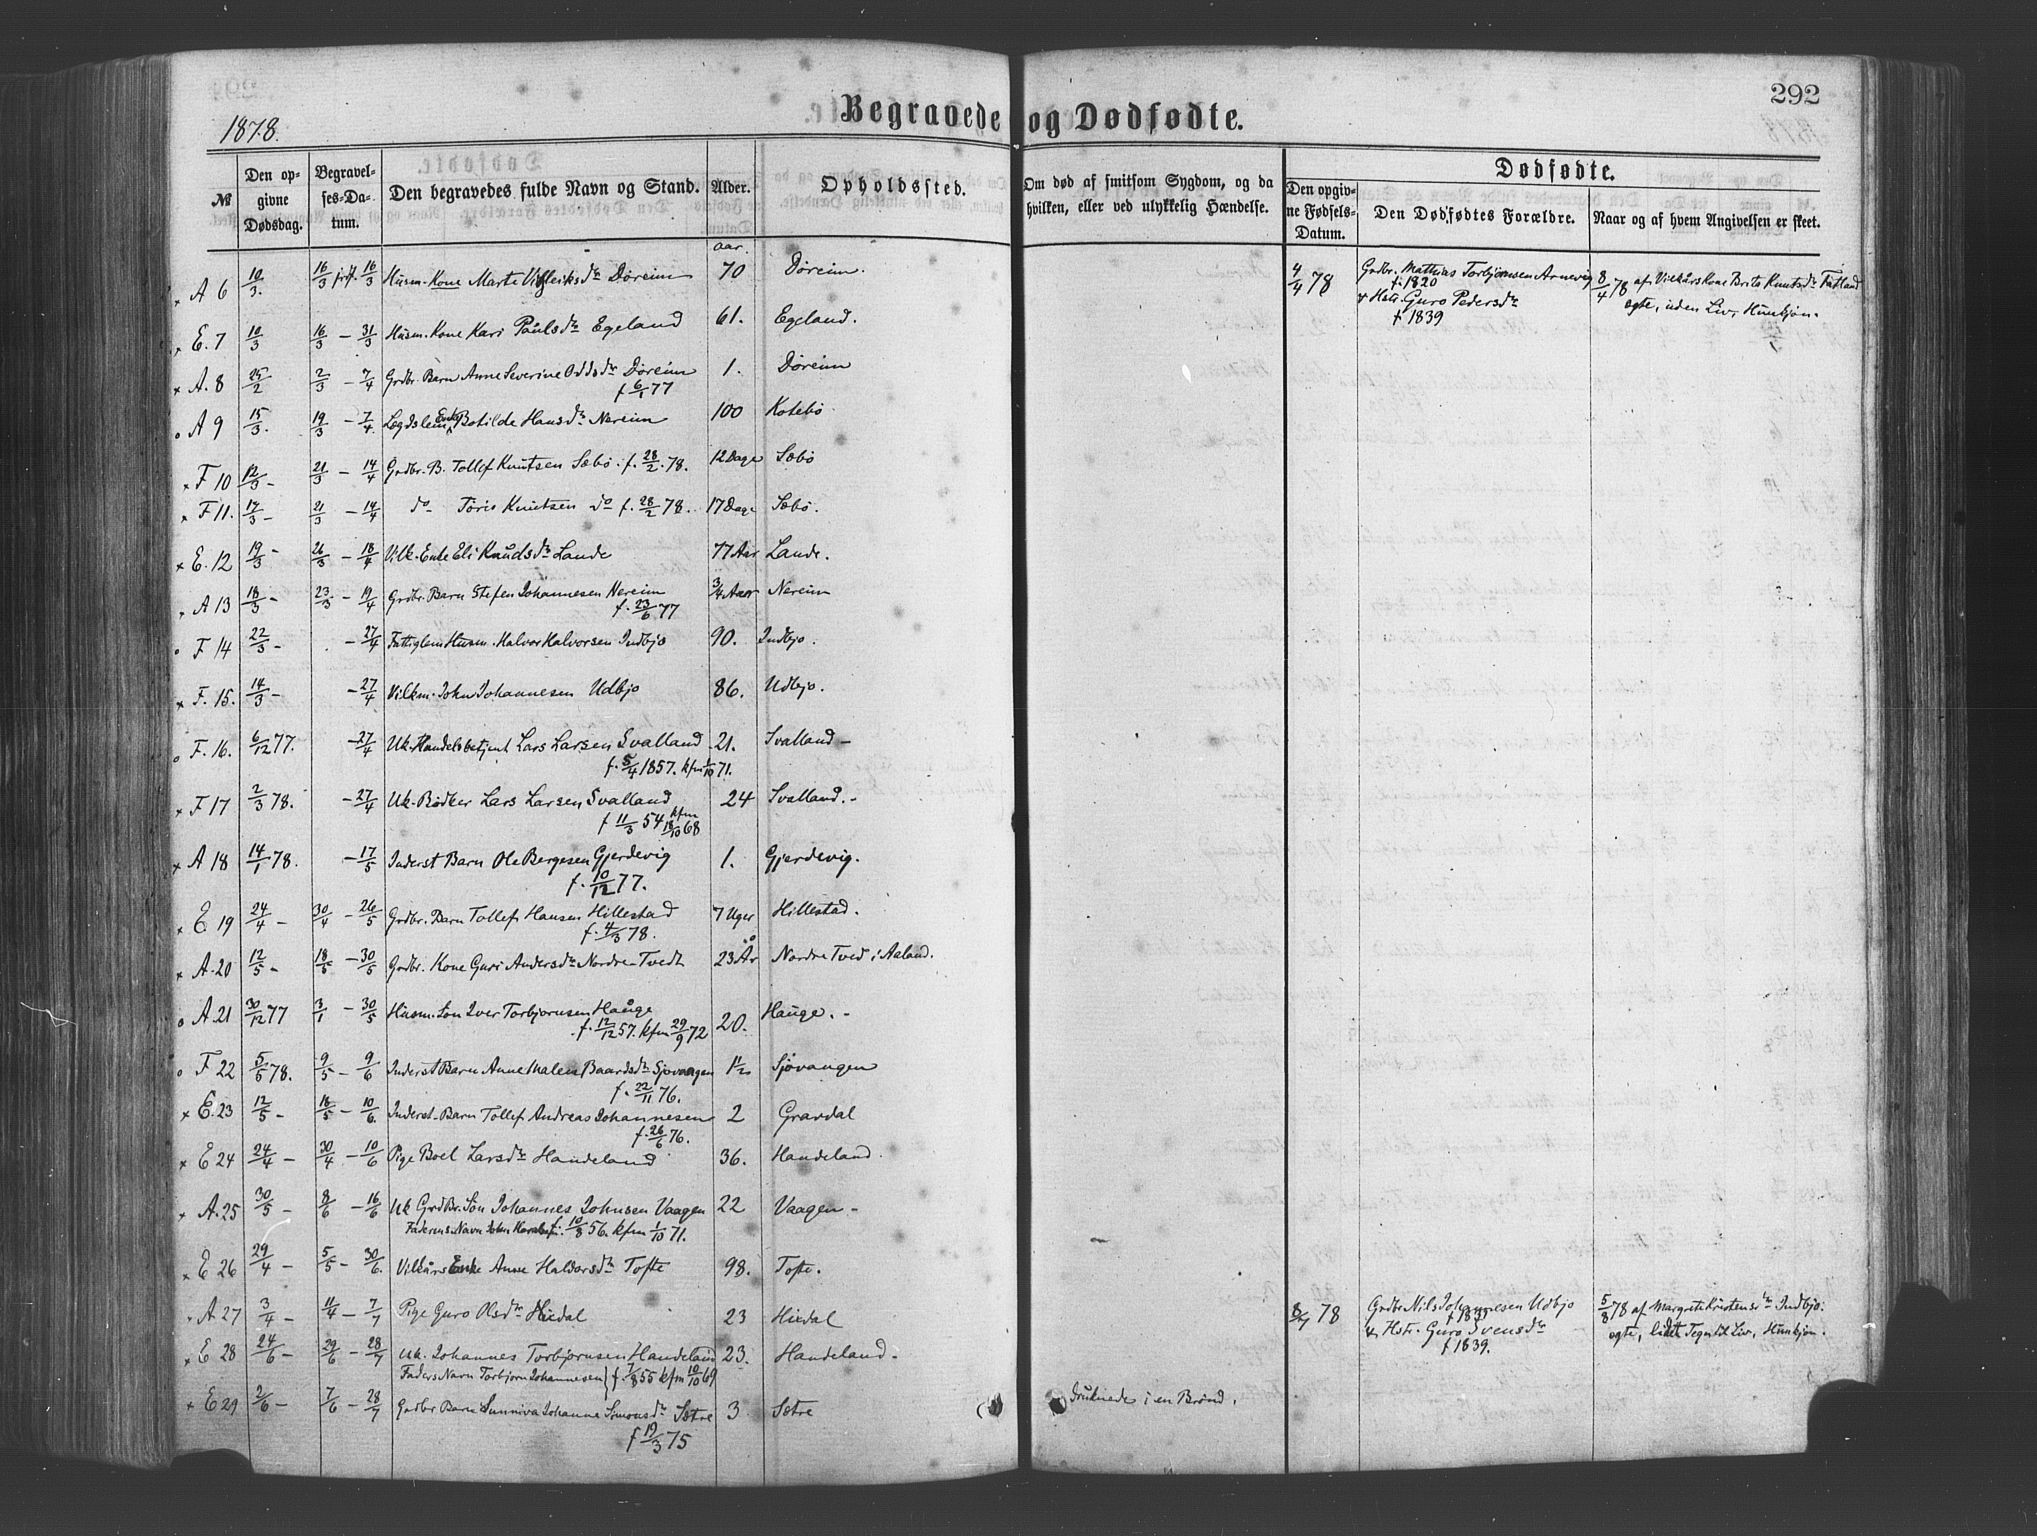 292
1878.
Begravede og Dødfødte.
№
Den opgivne Dødsdag.
Begravelses-Datum.
Den begravedes fulde Navn og Stand.
Alder.
Opholdssted.
Om død af smitsom Sygdom, og da hvilken, eller ved ulykkelig Hændelse.
Dødfødte.
Den opgivne Fødsels-Datum.
Den Dødfødtes Forældre.
Naar og af hvem Angivelsen er skeet.
× A 6 10/3. 16/3 jrdf. 16/3 Husm. Kone Marte Døreim aar 70 Døreim.
4/4 78 Grdbr. Mathias Torbjørnsen Arnevig 8/4 78 af Vilkårskone Brita Knutsdr Fatland
f. 1820
& Hstr. Guro Pedersdr ægte, uden Liv,
f 1839
× E. 7 10/3 16/3 – 31/3 Husm. Kone Kari Paulsdr Egeland 61. Egeland.
× A. 8 25/2 2/3 – 7/4 Grdbr. Barn Anne Severine Oddsdr Døreim 1. Døreim
f 6/1 77
o A 9 15/3. 19/3 – 7/4. Lægdslem Enke Botilde Hansdr Nereim 100 Kotebø
× F 10 12/3 – 21/3 – 14/4 Grdbr. B. Tollef Knutsen Sæbø. f. 28/2 78. 12 Dage Sæbø
× F 11. 17/3 – 21/3 – 14/4 do Tøris Knutsen do f. 28/2 78. 17 Dage Sæbø.
× E. 12 19/3 – 26/3 – 18/4 Vilk. Enke Eli Knudsdr Lande 77 Aar Lande.
× A 13 18/3 – 23/3 – 19/4 Grdbr. Barn Stefen Johannesen Nereim 3/4 Aar Nereim
f. 23/6 77
o F 14 22/3 – – 27/4 Fattiglem Husm. Halvor Halvorsen Indbjo 90. Indbjo.
× F. 15. 14/3 – – 27/4 Vilkm. John Johannesen Udbjo 86. Udbjo.
o F. 16. 6/12 77. – 27/4 Uk. Handelsbetjent Lars Larsen Svalland 21. Svalland –
f. 5/4 1857. kfm 1/10 71.
× F 17 2/3 78. – 27/4 Uk. Bødker Lars Larsen Svalland 24 Svalland. –
f 11/3 54 kfm 18/10 68
× A 18 14/1 78. – 17/5 Inderst Barn Ole Bergesen Gjerdevig 1. Gjerdevig.
f. 10/12 77.
× E 19 24/4 – 30/4 – 26/5 Grdbr. Barn Tollef Hansen Hillestad 7 Uger Hillestad.
f. 4/3 78.
× A. 20 12/5 – 18/5 – 30/5 Grdbr. Kone Guri Andersdr Nordre-Tvedt 23 År Nordre Tved i Aaland.
o A. 21 30/12 77 3/1 – 30/5 Husm. Søn Iver Torbjørnsen Hauge 20. Hauge. –
f. 12/12 57. kfm 29/9 72
o F 22 5/5 78. 9/5 – 9/6 Inderst Barn Anne Malene Baardsdr Sjovaagen Sjøvangen
f. 22/11 76.
× E. 23 12/5 – 18/5 – 10/6. Inderst. Barn Tollef Andreas Johannesen 2 Gravdal
f. 26/6 76.
× E 24 24/4 – 30/4 – 10/6 Pige Boel Larsdr Handeland 36. Handeland.
× A. 25 30/5 – 8/6 – 16/6 Uk Grdbr. Søn Johannes Johnsen Vaagen 22 Vaagen –
Faderens Navn John f. 10/8 56. kfm 1/10 71.
× E 26 29/4 – 5/5 – 30/6. Vilkårs Enke Anne Haldorsdr Tofte 98. Tofte.
A 27 3/4 – 11/4 – 7/7 Pige Guro Olsdr Hiedal 23 Hiedal
8/7 78 Grdbr Nils Johannesen Udbjo 5/8 78 af Margrete Kristensdr Indbjo.
& Hstr. Guro Svensdr ægte, Liv,
f 1839.
× E 28 24/6 – 29/6 – 28/7 Uk. Johannes Torbjørnsen Handeland 23. Handeland.
Faders Navn Torbjørn Johannesen f. 7/8 55 kfm 10/10 69
× E 29 2/6 – 7/6 – 28/7 Grdbr Barn Sunniva Johanne Simonsdr Sætre 3 Sætre druknede i en Brønd.
f 19/3 75